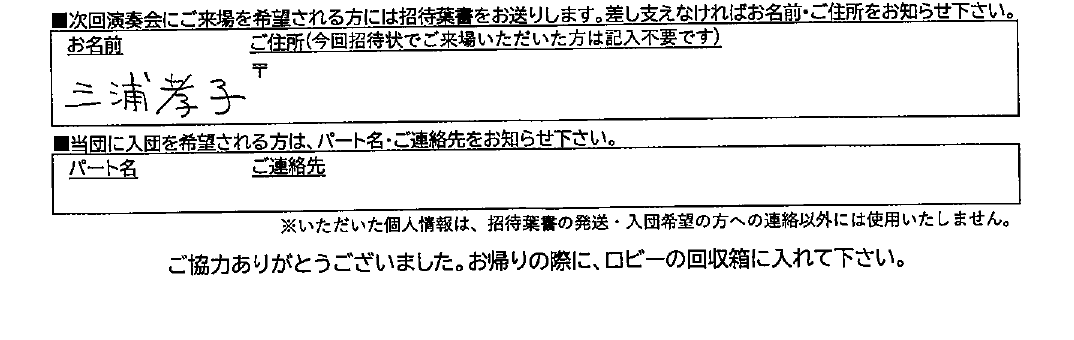 ■次回演奏会にご来場を希望される方には招待葉書をお送りします。差し支えなければお名前・ご住所をお知らせ下さい。
お名前 ご住所(今回招待状でご来場いただいた方は記入不要です)
〒
三浦孝子
■当団に入団を希望される方は、パート名・ご連絡先をお知らせ下さい。
パート名 ご連絡先
※いただいた個人情報は、招待葉書の発送・入団希望の方への連絡以外には使用いたしません。
ご協力ありがとうございました。お帰りの際に、ロビーの回収箱に入れて下さい。